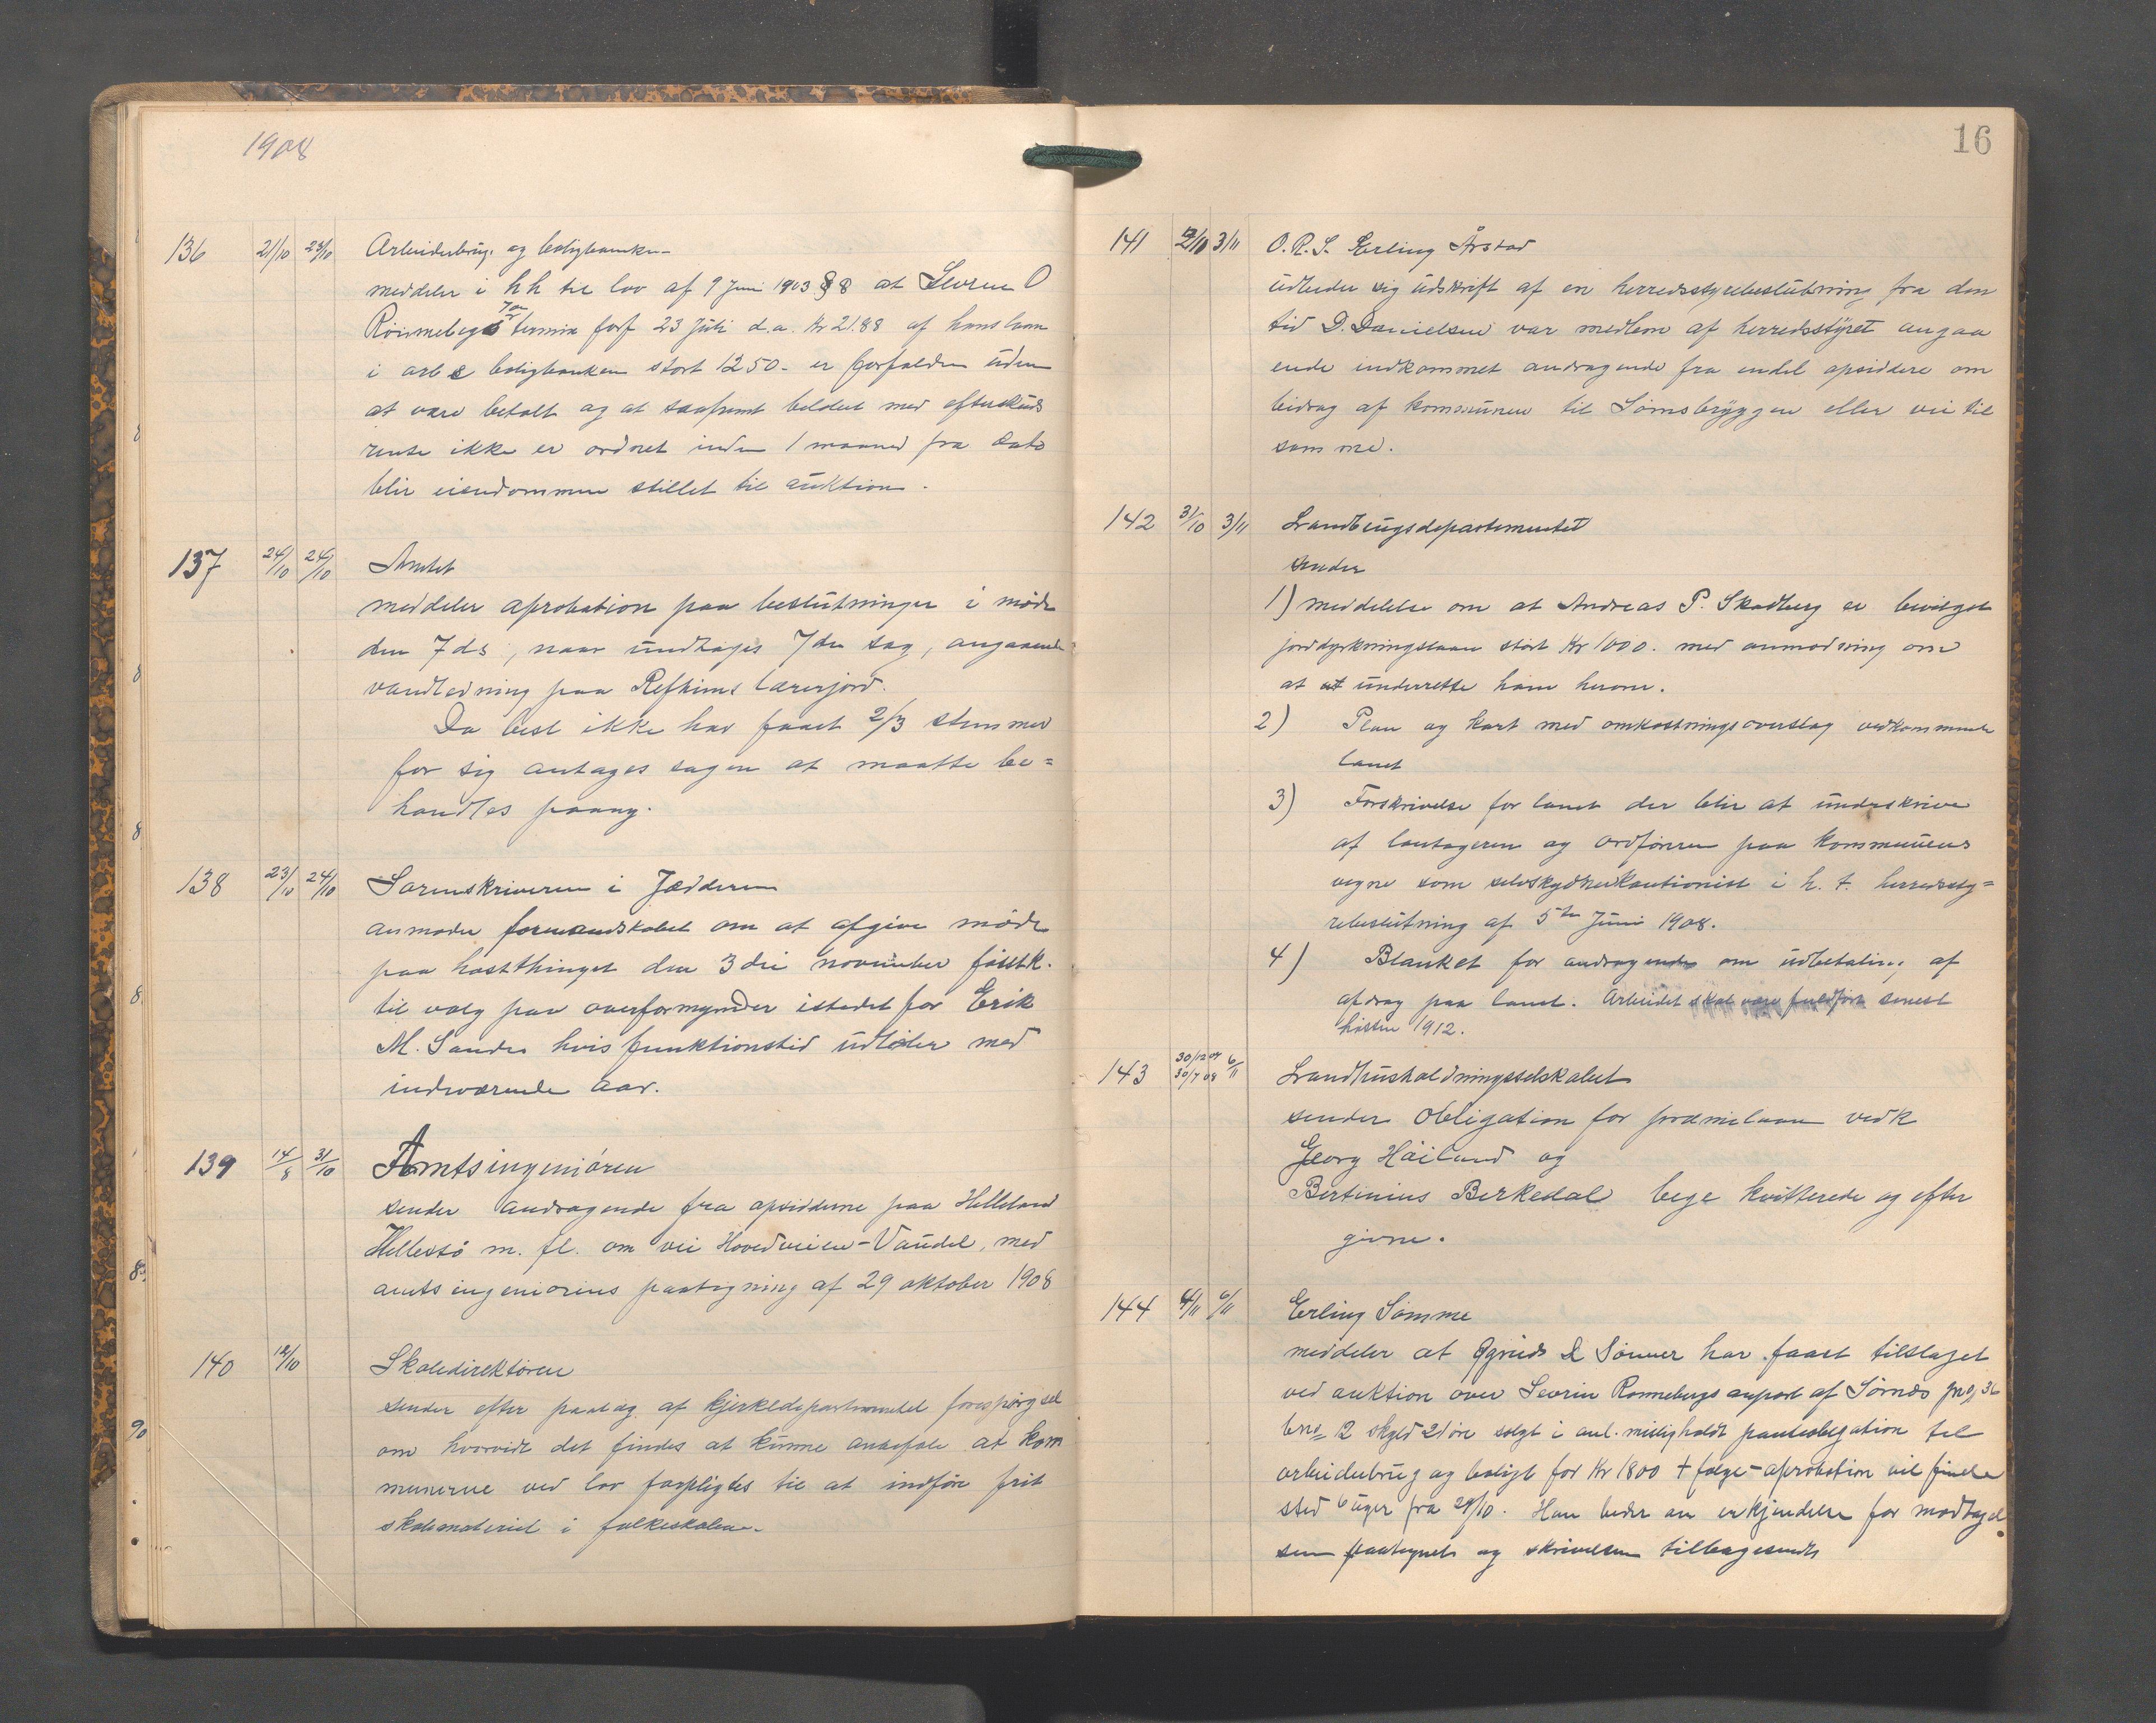 1908
136 21/10 23/10 Arbeiderbrug. og boligbanken
meddeler i h h til lov af 9 Juni 1903 § 8 at Severin O
Rönneberg's 7de termin forf 23 Juli d.a. Kr 21.88 af hans laan
i arb & boligbanken stort 1250.- er forfalden uden
at være betalt og at saafremt beløbet med efterskuds
rente ikke er ordnet inden 1 maaned fra dato
blir eiendommen stillet til auktion.
137 24/10 24/10 Amtet
meddeler aprobation paa beslutninger i møde
den 7 ds, naar undtages 7de sag, angaaende
vandledning paa Refheims lærerjord.
Da best ikke har faaet 2/3 stemmer
for sig antages sagen at maatte be=
handles paany.
138 23/10 24/10 Sorenskriveren i Jædderen
anmoder formandskabet om at afgive møde
paa høstthinget den 3die november förstk.
til valg paa overformynder istedet for Erik
M. Sande hvis funktionstid udløber med
indeværende aar.
139 14/8 31/10 Amtsingeniören
sender andragende fra opsidderne paa Helleland
Hellestö m. fl. om vei Hovedveien-Vaudel, med
amtsingeniörens paategning af 29 oktober 1908
140 12/10 Skoledirektören
sender efter paalæg af Kjerkedepartementet forespørgsel
om hvorvidt det findes at kunne anbefale at kom
munerne ved lov forpligtes til at indföre frit
skolemateriel i folkeskolen.
16
141 2/10 3/11 O.R.S. Erling Årstad
udbeder sig udskrift af en herredsstyrebeslutning fra den
tid D. Danielsen var medlem af herredsstyret angaa
ende indkommet andragende fra endel opsiddere om
bidrag af kommunen til Sömsbryggen eller vei til
samme.
142 31/10 3/11 Landbrugsdepartementet
sender
1) meddelelse om at Andreas P. Skadberg er bevilget
jorddyrkningslaan stort Kr 1000. med anmodning om
at at underrette ham herom.
2) Plan og kart med omkostningsoverslag vedkommende
lanet
3) Forskrivelse for lanet der blir at underskrive
af lantageren og ordföreren paa kommunens
vegne som selvskyldnerkautionist i h. t. herredssty=
rebeslutning af 5te Juni 1908.
4) Blanket for andragende om udbetaling af
afdrag paa lanet. Arbeidet skal være fuldført senest
hösten 1912.
143 30/12 07 30/7 08 6/11 Landhusholdningsselskabet
sender Obligation for præmielaan vedk
Georg Håiland og
Bertinius Birkedal bege kvitterede og efter
givne.
144 4/11 6/11 Erling Sömme
meddeler at & Sönner har faaet tilslaget
ved auktion over Severin Rønnebergs anpart af Sömnes gno 36
bno 12 skyld 21 öre solgt i anl. misligholdt panteobligation til
arbeiderbrug og boligb for Kr 1800 + følge-aprobation vil finde
sted 6 uger fra 29/10. Han beder om erkjendelse for modtagel
sen paategnet og skrivelsen tilbagesendt